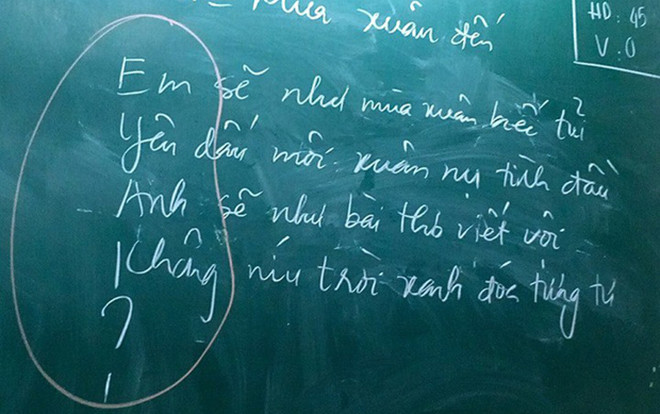 Mùa xuân đến
HD: 45
V: 0
Em sẽ như mùa xuân biết tủi
Yêu dấu môi xuân nụ tình đầu
Anh sẽ như bài thơ viết vội
Không níu trời xanh đóa từng
?